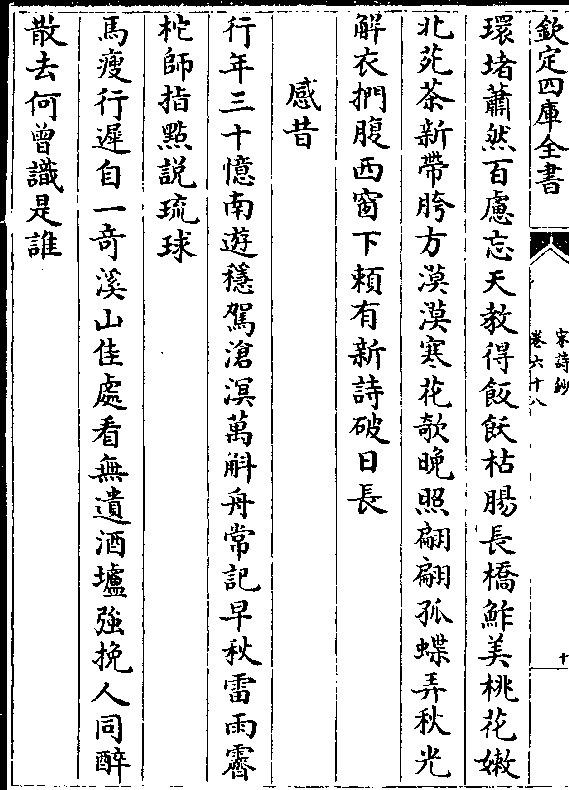 欽定四庫全書
宋詩鈔
卷六十八
十
環堵蕭然百慮忘天教得飯飫枯腸長橋鮓美桃花嫩
北苑茶新帶胯方漠漠寒花欹晚照翩翩孤蝶弄秋光
解衣捫腹西窗下頼有新詩破日長
感昔
行年三十憶南遊穩駕滄溟萬斛舟常記早秋雷雨霽
柁師指點説琉球
馬瘦行遲自一竒溪山佳處看無遺酒壚強挽人同醉
散去何曾識是誰